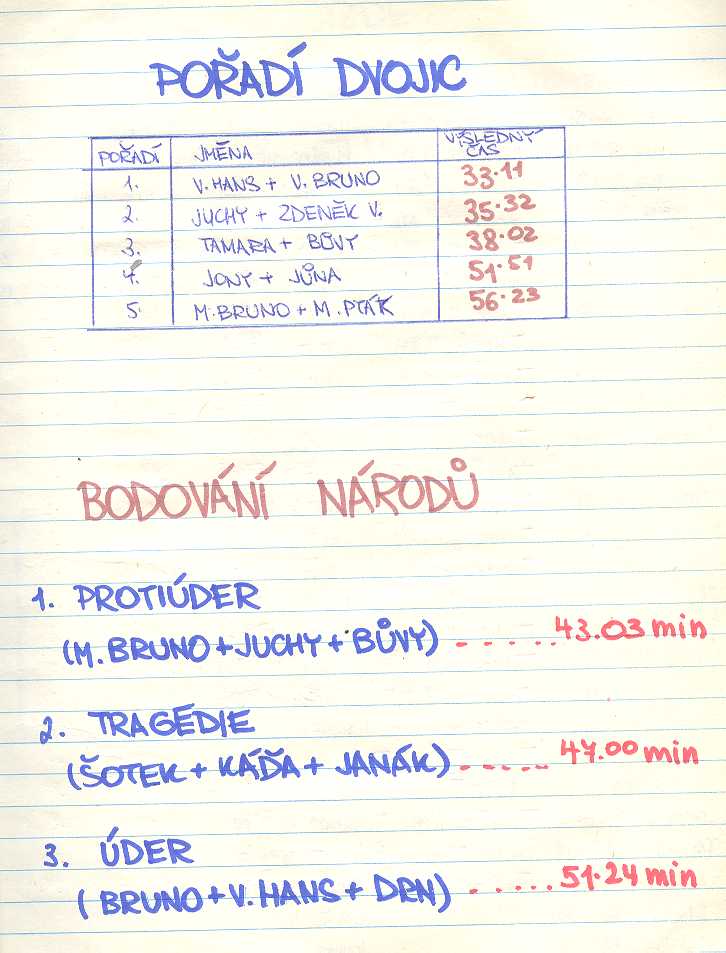 POŘADÍ DVOJIC
POŘADÍ JMÉNA VÝSLEDNÝ ČAS
1. V. HANS + V. BRUNO 33.11
2. JUCHY + ZDENĚK V. 35.32
3. TAMARA + BŮVY 38.02
4. JONY + JŮNA 51.51
5. M. BRUNO + M. PTÁK 56.23
BODOVÁNÍ NÁRODŮ
1. PROTIÚDER
(M. BRUNO + JUCHY + BŮVY) - - - - - 43.03 min
2. TRAGÉDIE
(ŠOTEK + KÁĎA + JANÁK) - - - - - 47.00 min
3. ÚDER
(BRUNO + V. HANS + DRN) - - - - - 51.24 min